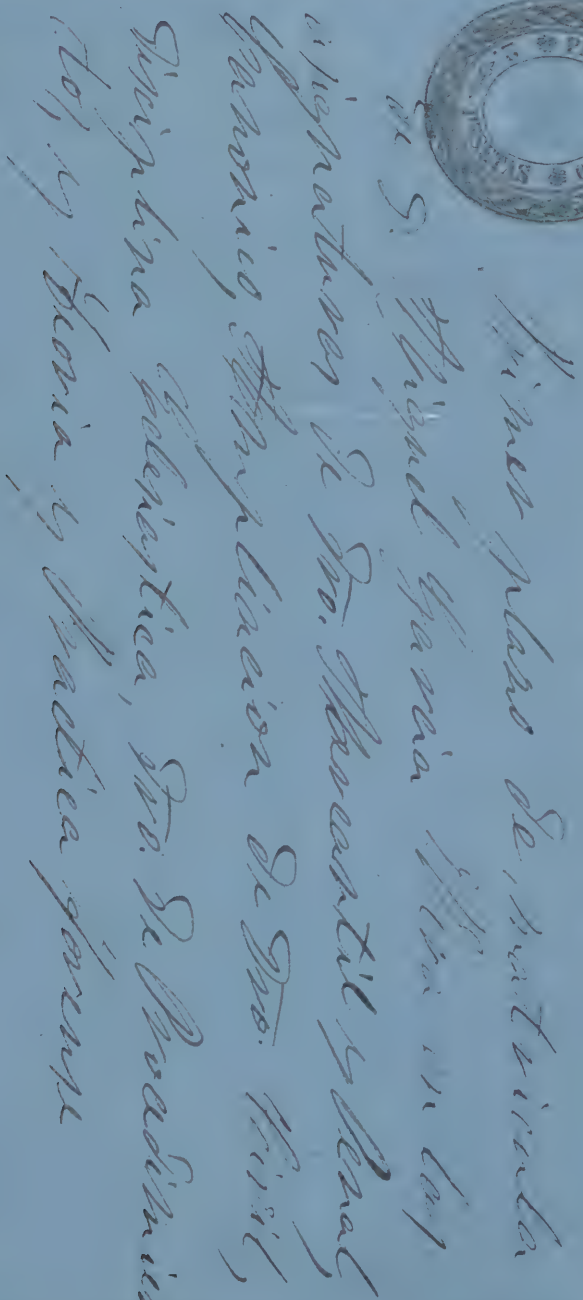 Primer plazo de matrícula
de S. Miguel García Mía en las
asignaturas de Dro. Mercantil y Penal
Canónico, Ampliacion de Dro. Civil,
Disciplina eclesiástica, Dro. de Procedimien
tos, y Teoria y Práctica forense